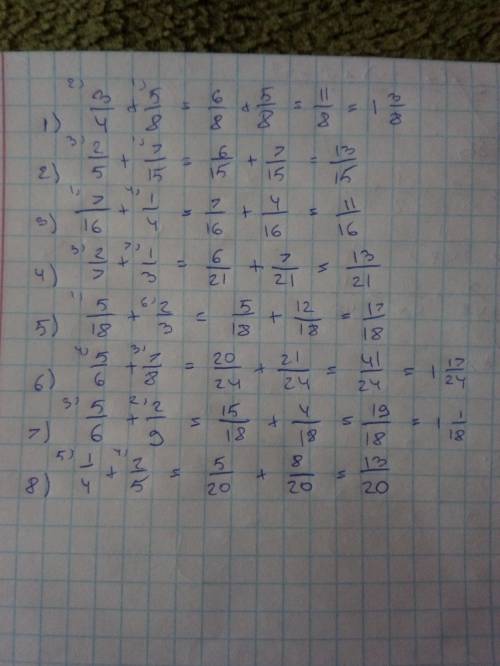 1) ²⁾3/4 + ¹⁾5/8 = 6/8 + 5/8 = 11/8 = 1 3/8
2) ³⁾2/5 + ¹⁾7/15 = 6/15 + 7/15 = 13/15
3) ¹⁾7/16 + ⁴⁾1/4 = 7/16 + 4/16 = 11/16
4) ³⁾2/7 + ⁷⁾1/3 = 6/21 + 7/21 = 13/21
5) ¹⁾5/18 + ⁶⁾2/3 = 5/18 + 12/18 = 17/18
6) ⁴⁾5/6 + ³⁾7/8 = 20/24 + 21/24 = 41/24 = 1 17/24
7) ³⁾5/6 + ²⁾2/9 = 15/18 + 4/18 = 19/18 = 1 1/18
8) ⁵⁾1/4 + ⁴⁾2/5 = 5/20 + 8/20 = 13/20